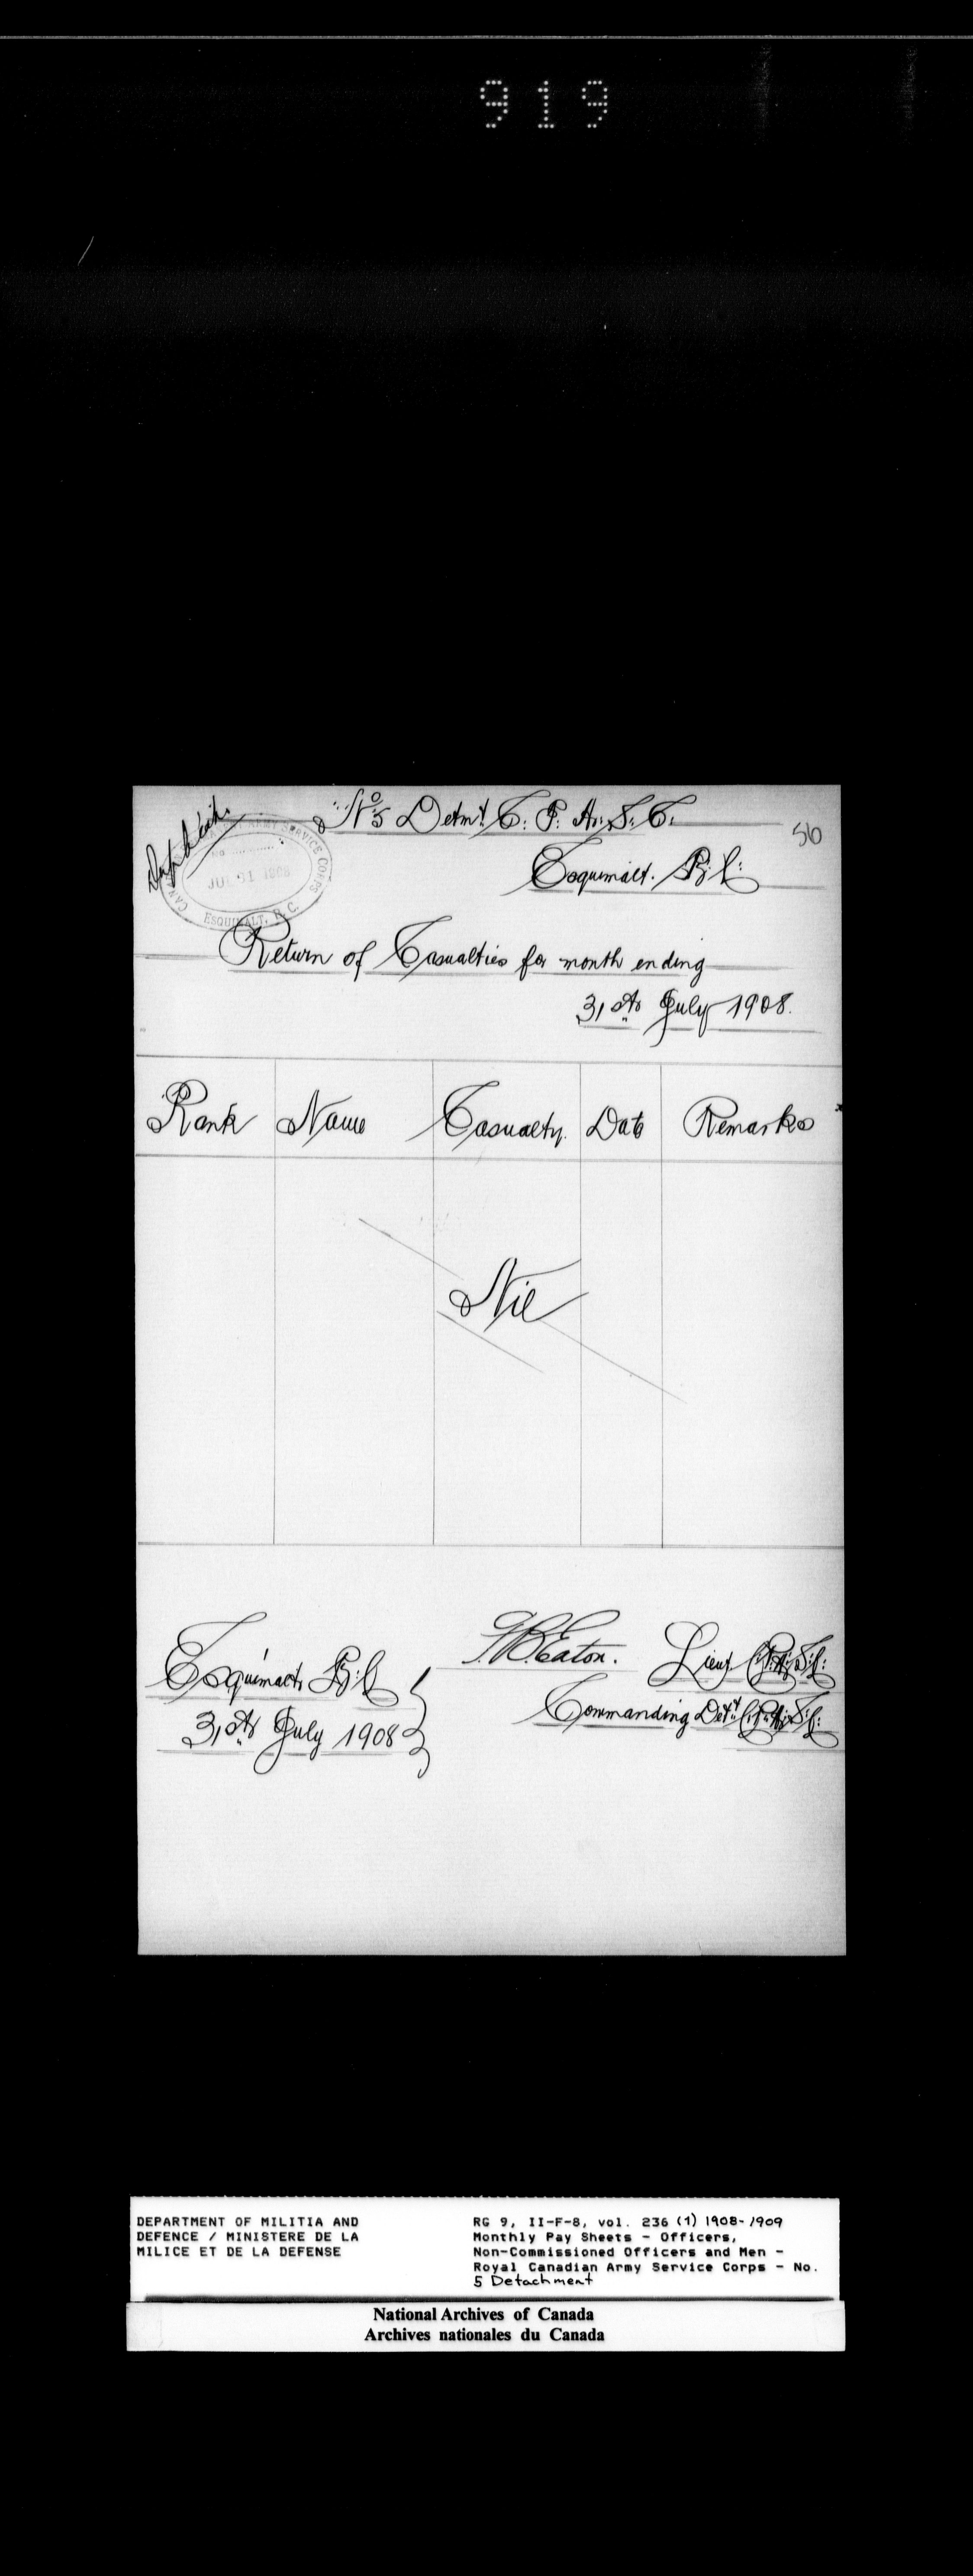 919
No 5 Detmt C. P. A. S. C.
56
CANADIAN PERMANENT ARMY SERVICE CORPS
No
JUL 31 1908
ESQUIMALT, B.C.
Esquimalt. B.C.
Return of Casualties for month ending
31st July 1908.
Rank Name Casualty. Date Remarks
Nil
Esquimalt B.C. Eaton. Lieut C.P.A.S.C.
31st July 1908 Commanding Det't C.P.A.S.C.
DEPARTMENT OF MILITIA AND
DEFENCE / MINISTERE DE LA
MILICE ET DE LA DEFENSE
RG 9, II-F-8, vol. 236 (1) 1908-1909
Monthly Pay Sheets - Officers,
Non-Commissioned Officers and Men -
Royal Canadian Army Service Corps - No.
5 Detachment
National Archives of Canada
Archives nationales du Canada